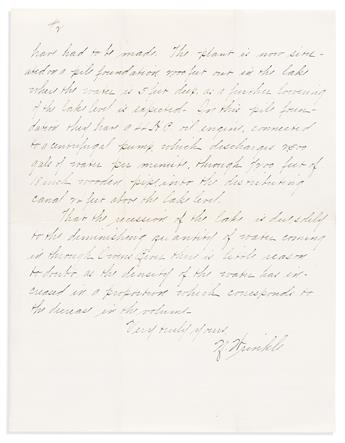 #2
have had to be made. The plant is now situ-
ated on a pile foundation 1100 feet out in the lake
where the water is 5 feet deep, as a further lowering
of the lake level is expected. On this pile foun-
dation they have a H.P. oil engine, connected
to a centrifugal pump which discharges
gals of water per minute, through feet of
18 inch wooden pipe, into the distributing
canal feet above the lake level.
That the recession of the lake is due solely
to the diminishing quantity of water coming
in through Owens River there is little reason
to doubt as the density of the water has in-
creased in a proportion which corresponds to
the decrease in the volume.
Very truly yours,
Hinkle